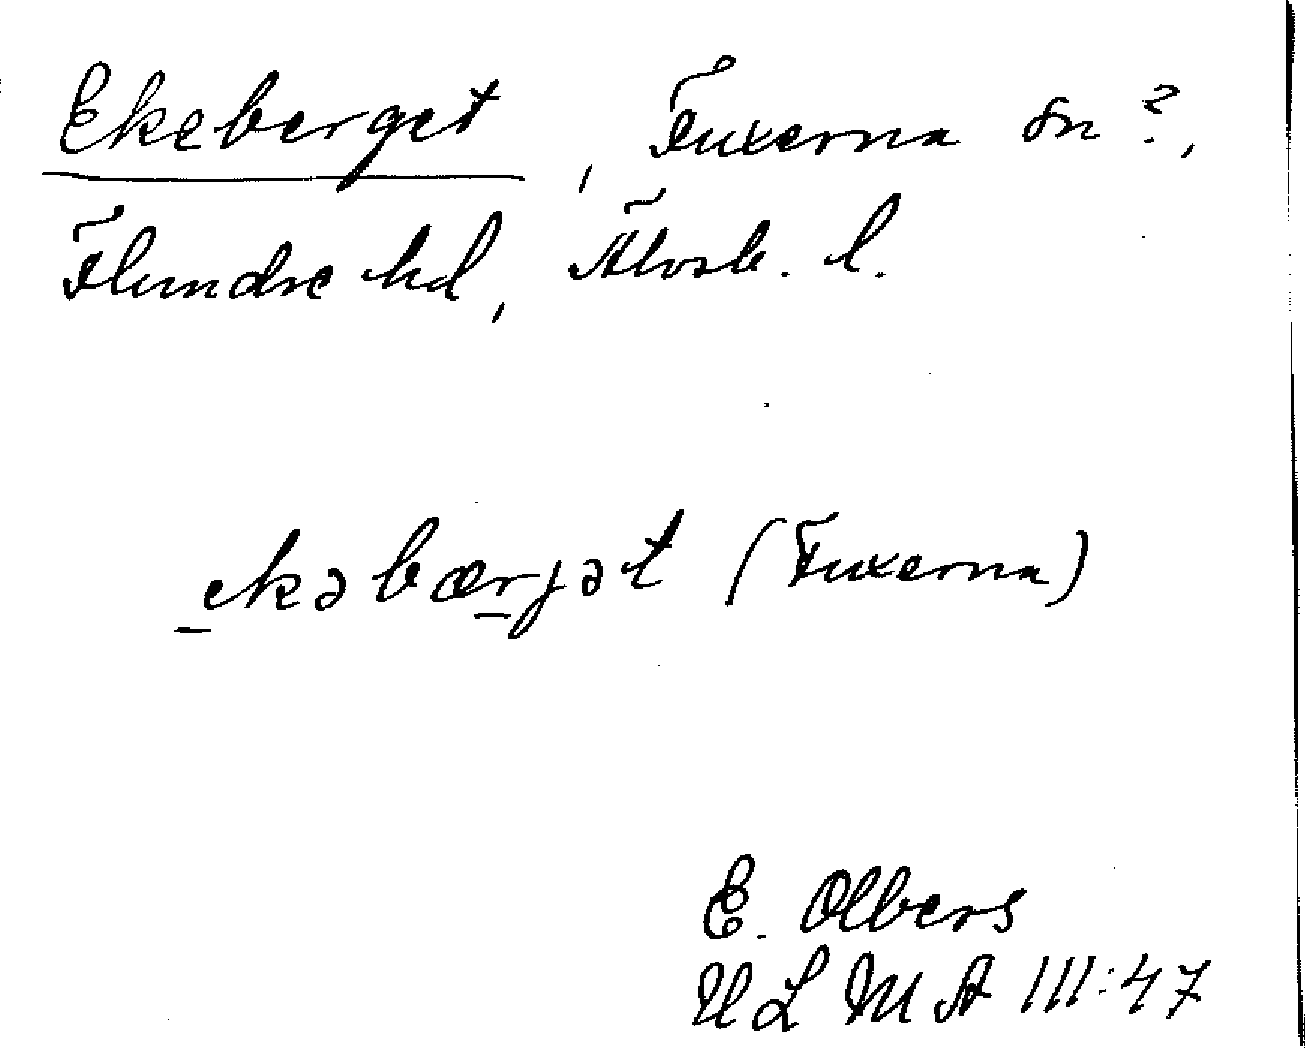 Ekeberget, Fuxerna sn?,
Flundre hd, Älvsb. l.
ekəbærjət (Fuxerna)
E. Olbers
ULMA III:47